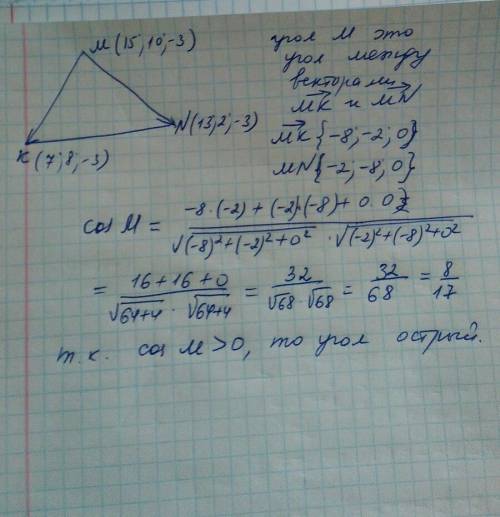 M (15; 10; -3)
N (13; 2; -3)
K (7; 8; -3)
угол M это
угол между
векторами
MK и MN
MK {-8; -2; 0}
MN {-2; -8; 0}
cos M = (-8·(-2) + (-2)·(-8) + 0·0) / (√((-8)²+(-2)²+0²) · √((-2)²+(-8)²+0²))
= (16+16+0) / (√(64+4) · √(64+4)) = 32 / (√68 · √68) = 32/68 = 8/17
т.к. cos M > 0, то угол острый.